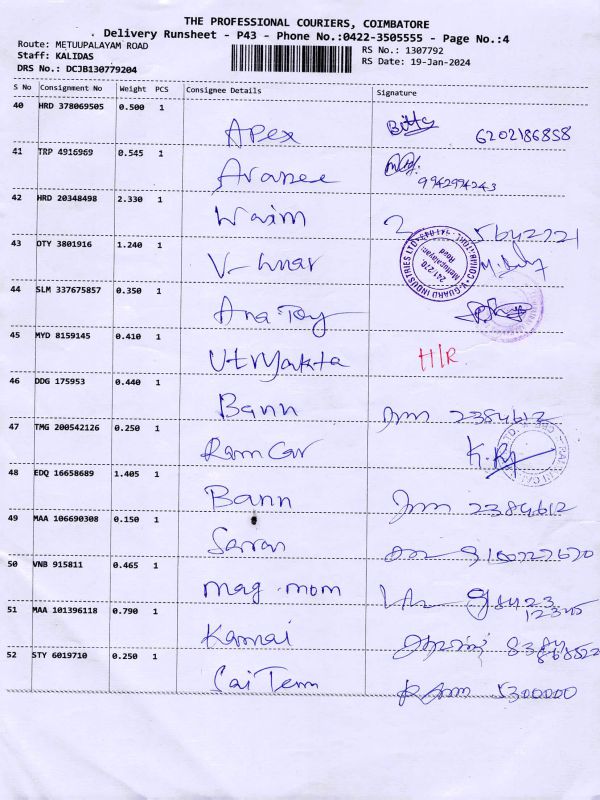 THE PROFESSIONAL COURIERS, COIMBATORE
Delivery Runsheet - P43 - Phone No.:0422-3505555 - Page No.:4
Route: METUUPALAYAM ROAD
RS No.: 1307792
Staff: KALIDAS
RS Date: 19-Jan-2024
DRS No.: DCJB130779204
S No Consignment No Weight PCS Consignee Details Signature
40 HRD 378069505 0.500 1
Apex 6202186858
41 TRP 4916969 0.545 1
Aranee 9942994243
42 HRD 20348498 2.330 1
Waim
43 OTY 3801916 1.240 1
V-Guar
44 SLM 337675857 0.350 1
Ana Toy
45 MYD 8159145 0.410 1
H/R.
46 DDG 175953 0.440 1
Bann 2384612
47 TMG 200542126 0.250 1
Ram Car
48 EDQ 16658689 1.405 1
Bann 2384612
49 MAA 106690308 0.150 1
Saran
50 VNB 915811 0.465 1
mag.mom 98423
12345
51 MAA 101396118 0.790 1
Kamai
52 STY 6019710 0.250 1
Sai Tem 5300000